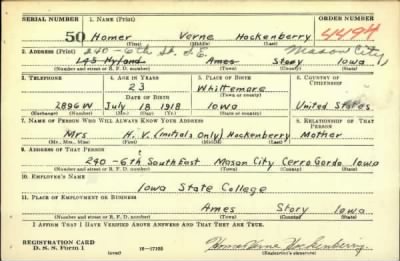 SERIAL NUMBER 1. NAME (Print) ORDER NUMBER
50 Homer Verne Hockenberry 4494
(First) (Middle) (Last)
2. ADDRESS (Print) 240-6th St. S.E. Mason City
145 Hyland Ames Story Iowa
(Number and street or R. F. D. number) (Town) (County) (State)
3. TELEPHONE 4. AGE IN YEARS 5. PLACE OF BIRTH 6. COUNTRY OF CITIZENSHIP
23 Whittemore
DATE OF BIRTH (Town or county)
2896W July 18 1918 Iowa United States
(Exchange) (Number) (Mo.) (Day) (Yr.) (State or country)
7. NAME OF PERSON WHO WILL ALWAYS KNOW YOUR ADDRESS 8. RELATIONSHIP OF THAT PERSON
Mrs H. V. (initials Only) Hockenberry Mother
(Mr., Mrs., Miss) (First) (Middle) (Last)
9. ADDRESS OF THAT PERSON
240-6th SouthEast Mason City Cerro Gordo Iowa
(Number and street or R. F. D. number) (Town) (County) (State)
10. EMPLOYER'S NAME
Iowa State College
11. PLACE OF EMPLOYMENT OR BUSINESS
Ames Story Iowa
(Number and street or R. F. D. number) (Town) (County) (State)
I AFFIRM THAT I HAVE VERIFIED ABOVE ANSWERS AND THAT THEY ARE TRUE.
REGISTRATION CARD
D. S. S. Form 1 (over) 16-17105 Homer Verne Hockenberry
(Registrant's signature)